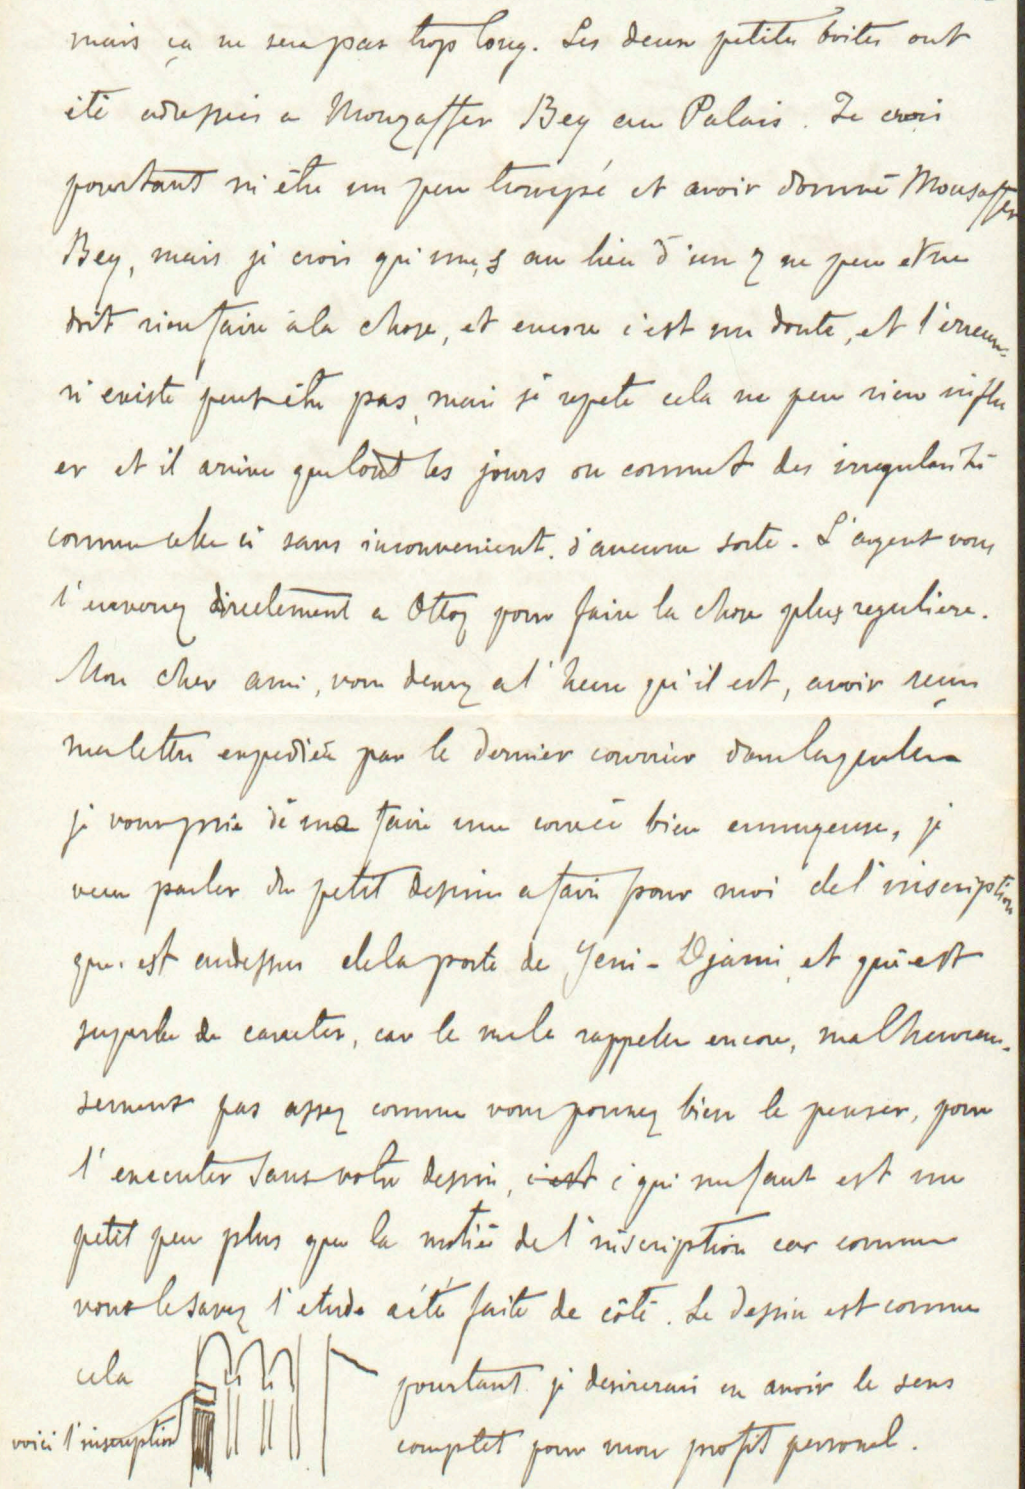 mais ça ne sera pas trop long. Les deux petites boites ont
été adressées a Mouzaffer Bey au Palais. Je crois
pourtant m'être un peu trompé et avoir donné Mousaffer
Bey, mais je crois qu'une s au lieu d'un z ne peu et ne
doit rien faire à la chose, et encore c'est un doute, et l'erreur
n'existe peut-être pas, mais je repete cela ne peu rien influ
er et il arrive que tout les jours on commet des irregularités
comme celle ci sans inconvenient d'aucune sorte. L'argent vous
l'enverrez directement a Ottoz pour faire la chose plus reguliere.
Mon cher ami, vous devez a l'heure qu'il est, avoir reçu
ma lettre expediée par le dernier courrier dans laquelle
je vous prie de me faire une corvée bien ennuyeuse, je
veux parler du petit dessin a faire pour moi de l'inscription
qui est audessus de la porte de Yeni-Djami et qui est
superbe de caracter, car le mele rappeler encore, malheureu-
sement pas assez comme vous pouvez bien le penser, pour
l'executer sans votre dessin, c'est ce qui me faut est un
petit peu plus que la moitié de l'inscription car comme
vous le savez l'etude a été faite de côté. Le dessin est comme
cela pourtant je desirerais en avoir le sens
voici l'inscription complet pour mon profit personel.